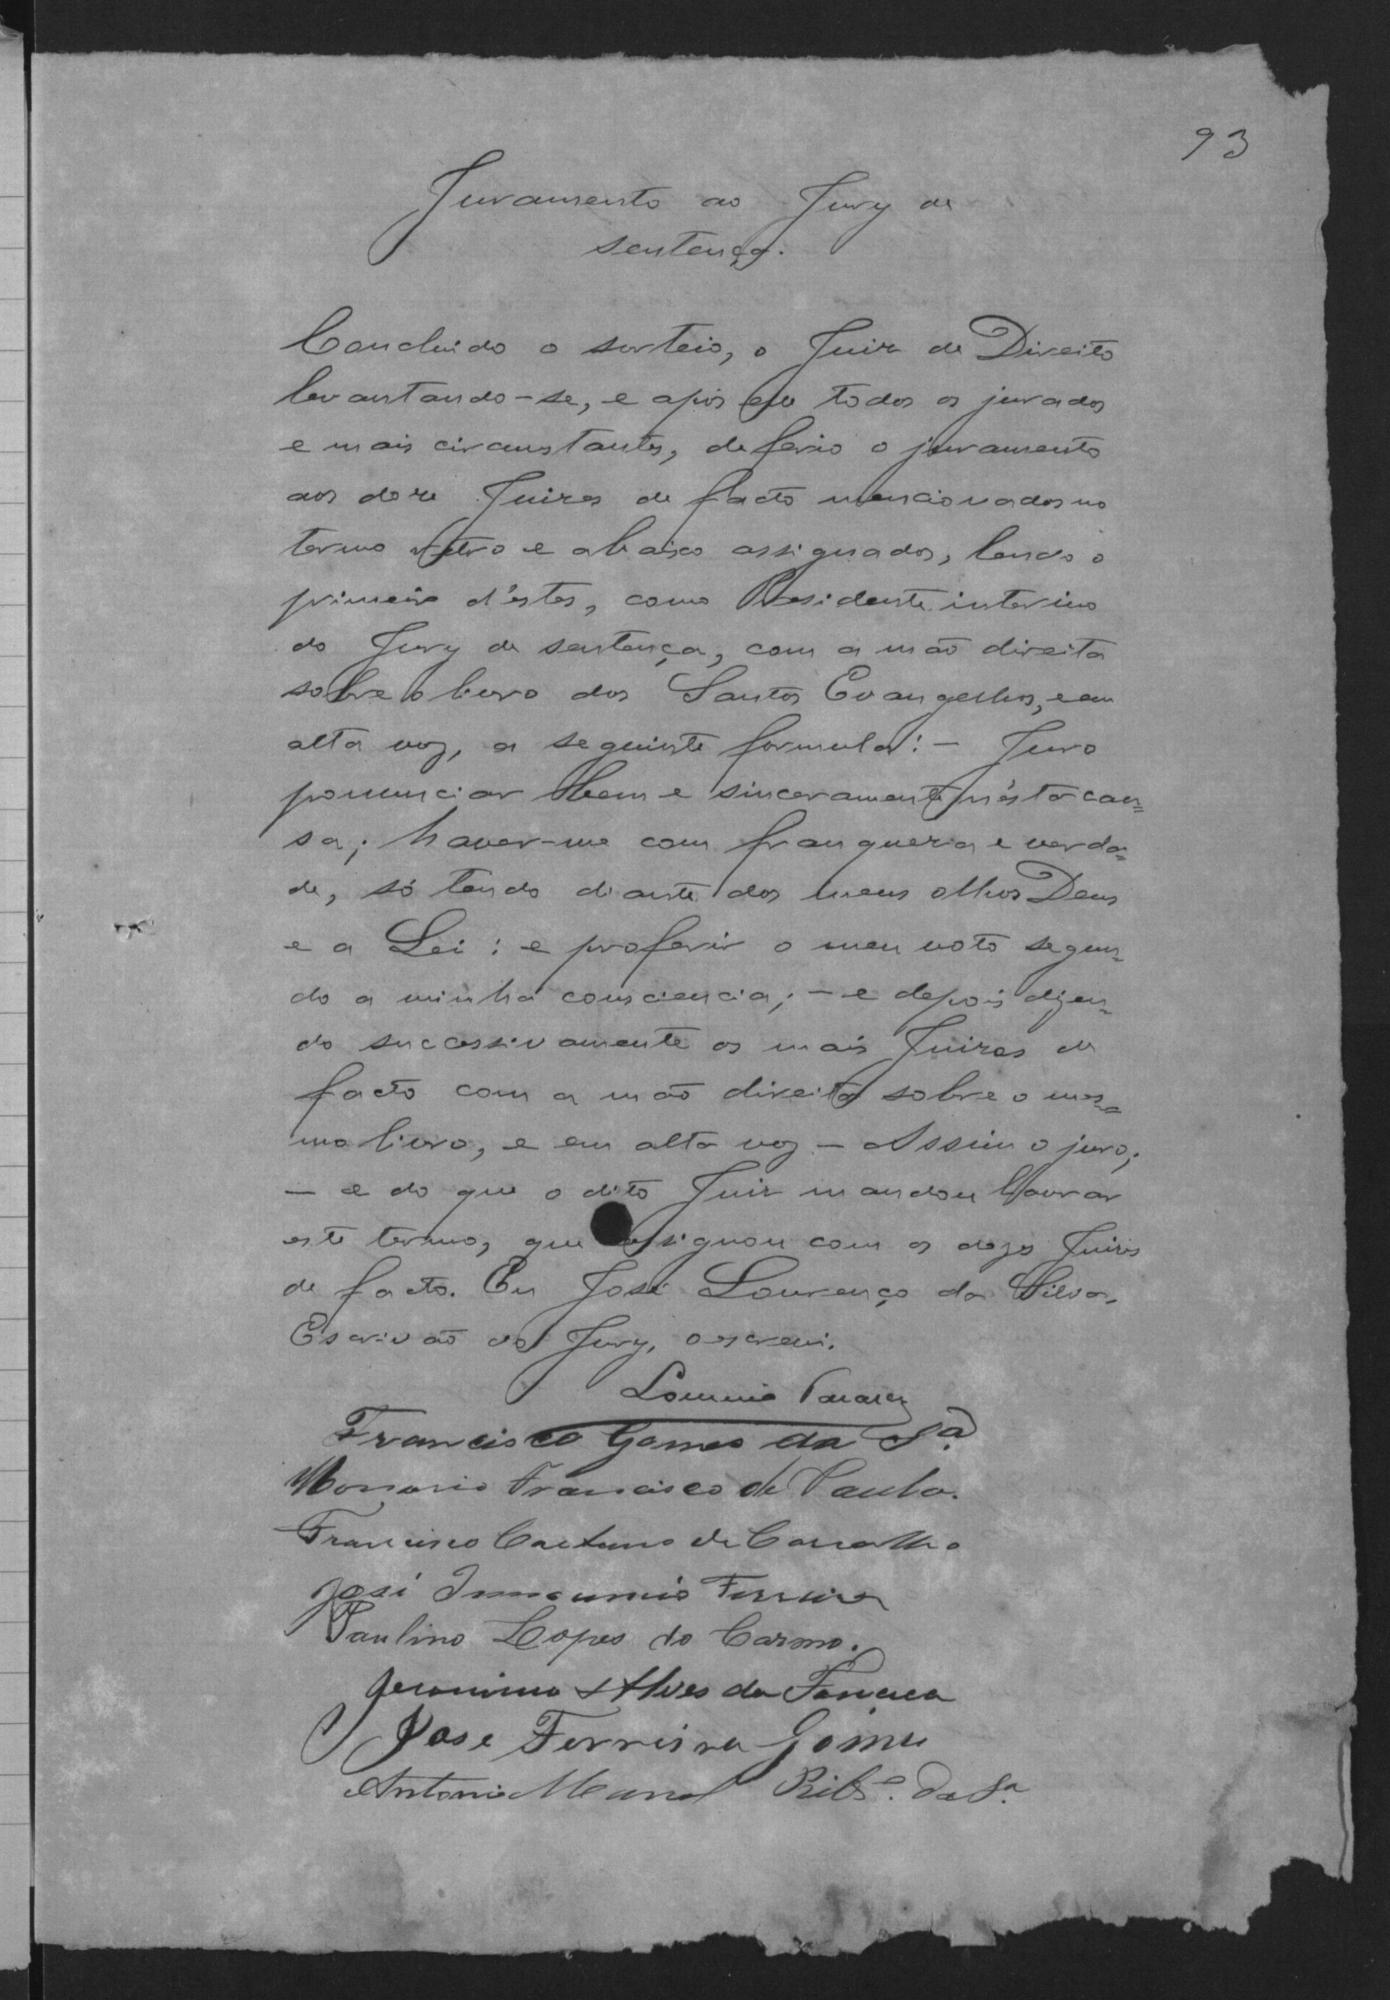 93
Juramento ao Jury de
sentença.
Concluido o sorteio, o Juiz de Direito
levantando-se, e após elle todos os jurados
e mais circunstantes, deferio o juramento
aos doze Juizes de facto mencionados no
termo retro e abaixo assignados, lendo o
primeiro d'estes, como Presidente interino
do Jury de sentença, com a mão direita
sobre o livro dos Santos Evangelhos, e em
alta voz, a seguinte formula: - Juro
pronunciar bem e sinceramente n'esta cau=
sa; haver-me com franqueza e verda=
de, só tendo diante dos meus olhos Deus
e a Lei; e proferir o meu voto segun=
do a minha consciencia; - e depois dizen=
do successivamente os mais Juizes de
facto com a mão direita sobre o mes=
mo livro, e em alta voz - Assim o juro;
- e do que o dito Juiz mandou lavrar
este termo, que assignou com os doze Juizes
de facto. Eu José Lourenço da Silva,
Escrivão do Jury, o escrevi.
Francisco Gomes da Sª
Francisco de Paula.
Francisco Caetano de Carvalho
José Ferreira
Paulino Lopes do Carmo.
Jeronimo Alves da Fonseca
Jose Ferreira Gomes
Antonio Manoel Ribº. da Sª.